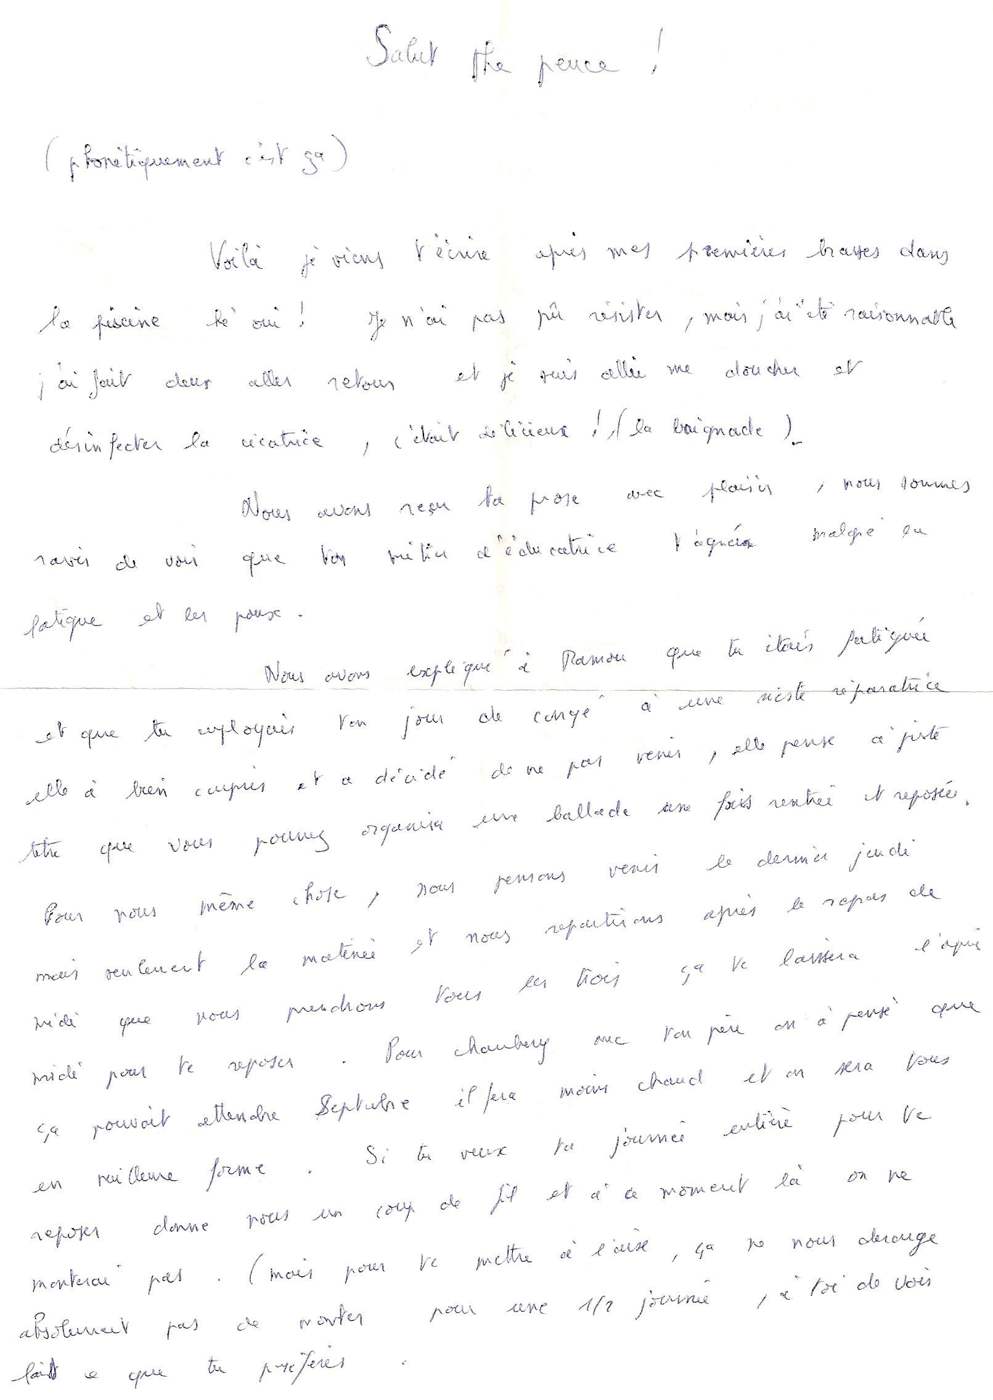 Salut the peuce !
(phonétiquement c'est ça)
Voilà je viens t'écrire après mes premières brasses dans
la piscine hé oui ! Je n'ai pas pû résister, mais j'ai été raisonnable
j'ai fait deux aller retour et je suis allée me doucher et
désinfecter la cicatrice, c'était délicieux ! (la baignade).
Nous avons reçu ta prose avec plaisir, nous sommes
ravis de voir que ton métier d'éducatrice t'agrée malgré la
fatigue et les poux.
Nous avons expliqué à Mamou que tu étais fatiguée
et que tu employais ton jour de congé à une sieste réparatrice
elle à bien compris et a décidé de ne pas venir, elle pense à juste
titre que vous pourrez organiser une ballade une fois rentrée et reposée.
Pour nous même chose, nous pensons venir le dernier jeudi
mais seulement la matinée et nous repartirions après le repas de
midi que nous prendrons tous les trois ça te laissera l'après
midi pour te reposer. Pour chambery avec ton père on à pensé que
ça pouvait attendre Septembre il fera moins chaud et on sera tous
en meilleure forme. Si tu veux ta journée entière pour te
reposer donne nous un coup de fil et à ce moment là on ne
monterai pas. (mais pour te mettre à l'aise, ça ne nous dérange
absolument pas de monter pour une 1/2 journée, à toi de voir
fait ce que tu préfères.